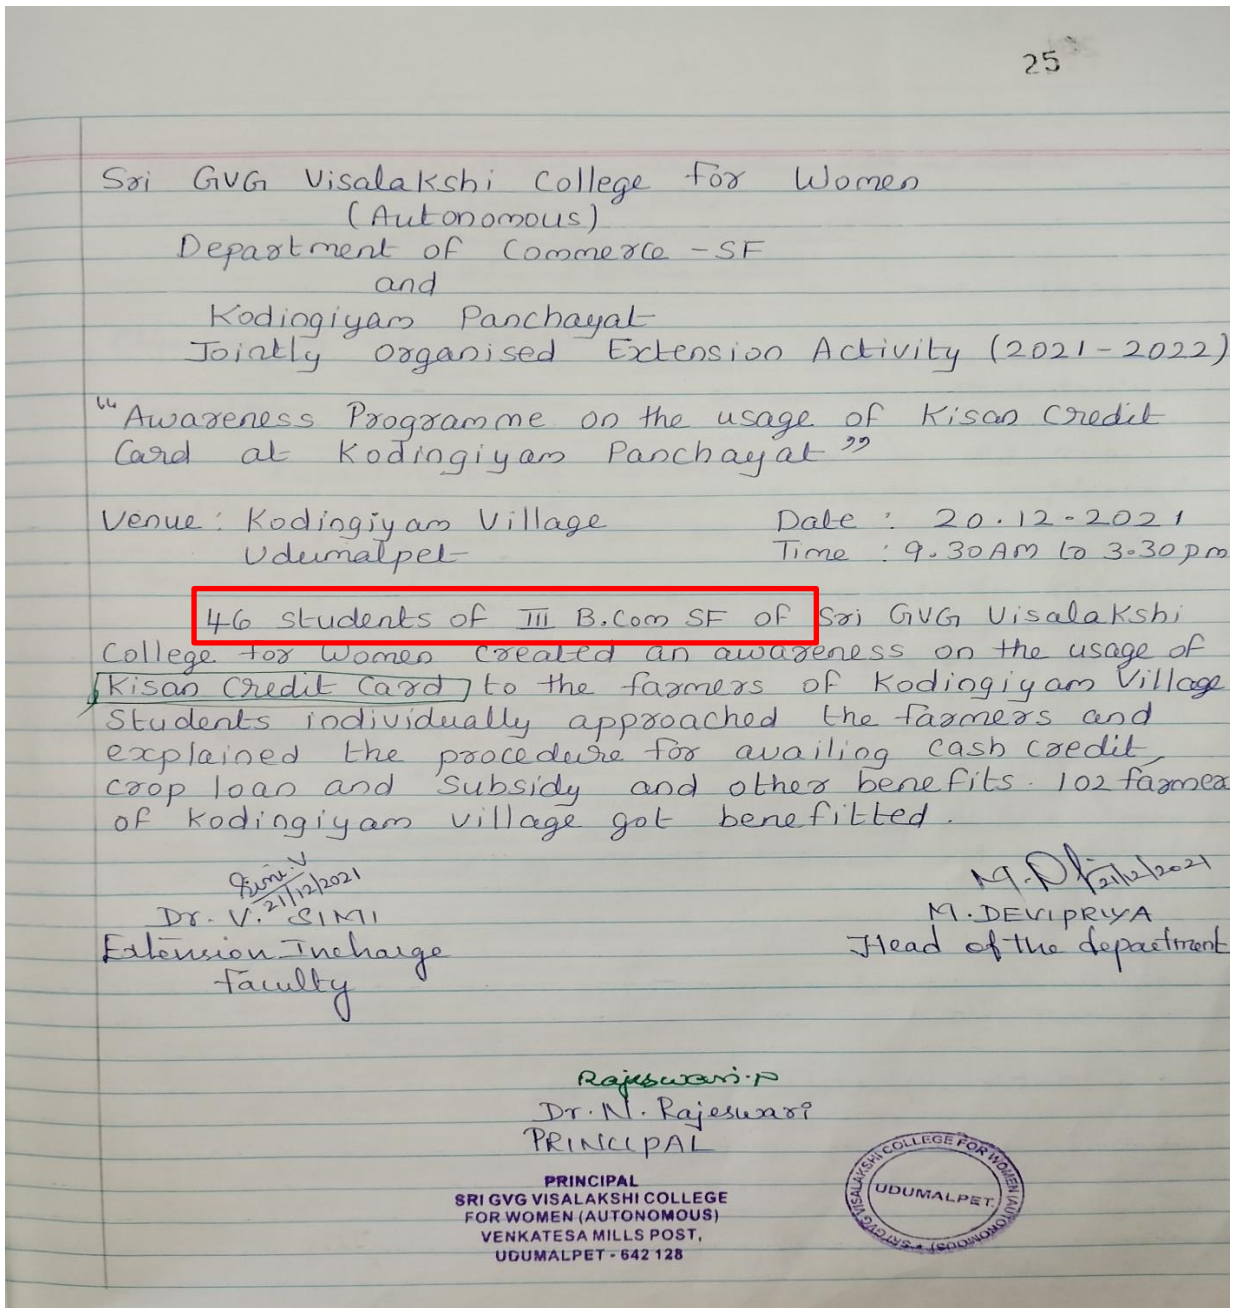 25
Sri GVG Visalakshi College for Women
(Autonomous)
Department of Commerce - SF
and
Kodingiyam Panchayat
Jointly organised Extension Activity (2021-2022)
"Awareness Programme on the usage of Kisan Credit
Card at Kodingiyam Panchayat"
Venue: Kodingiyam Village Date : 20.12.2021
Udumalpet Time : 9.30AM to 3.30pm
46 students of III B.Com SF of Sri GVG Visalakshi
College for Women created an awareness on the usage of
Kisan Credit Card to the farmers of Kodingiyam Village
Students individually approached the farmers and
explained the procedure for availing cash credit,
crop loan and Subsidy and other benefits. 102 farmer
of Kodingiyam village got benefitted.
Simi.V M.D
21/12/2021 21/12/2021
Dr. V. SIMI M. DEVIPRIYA
Extension Incharge Head of the department
faculty
Rajeswari.N
Dr. N. Rajeswari
PRINCIPAL
PRINCIPAL
SRI GVG VISALAKSHI COLLEGE
FOR WOMEN (AUTONOMOUS)
VENKATESA MILLS POST,
UDUMALPET - 642 128
SRI GVG VISALAKSHI COLLEGE FOR WOMEN (AUTONOMOUS)
UDUMALPET.